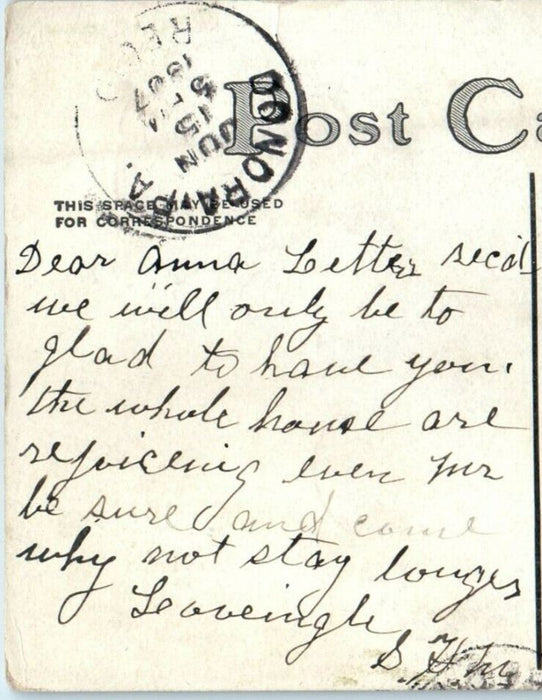 DONORA, PA.
JUN
15
5 PM
1907
REC'D
Post Ca
THIS SPACE MAY BE USED
FOR CORRESPONDENCE
Dear Anna Letter rec'd
we will only be to
glad to have you.
the whole house are
rejoiceing even Mr
be sure and come
why not stay longer
Leaveingly
S